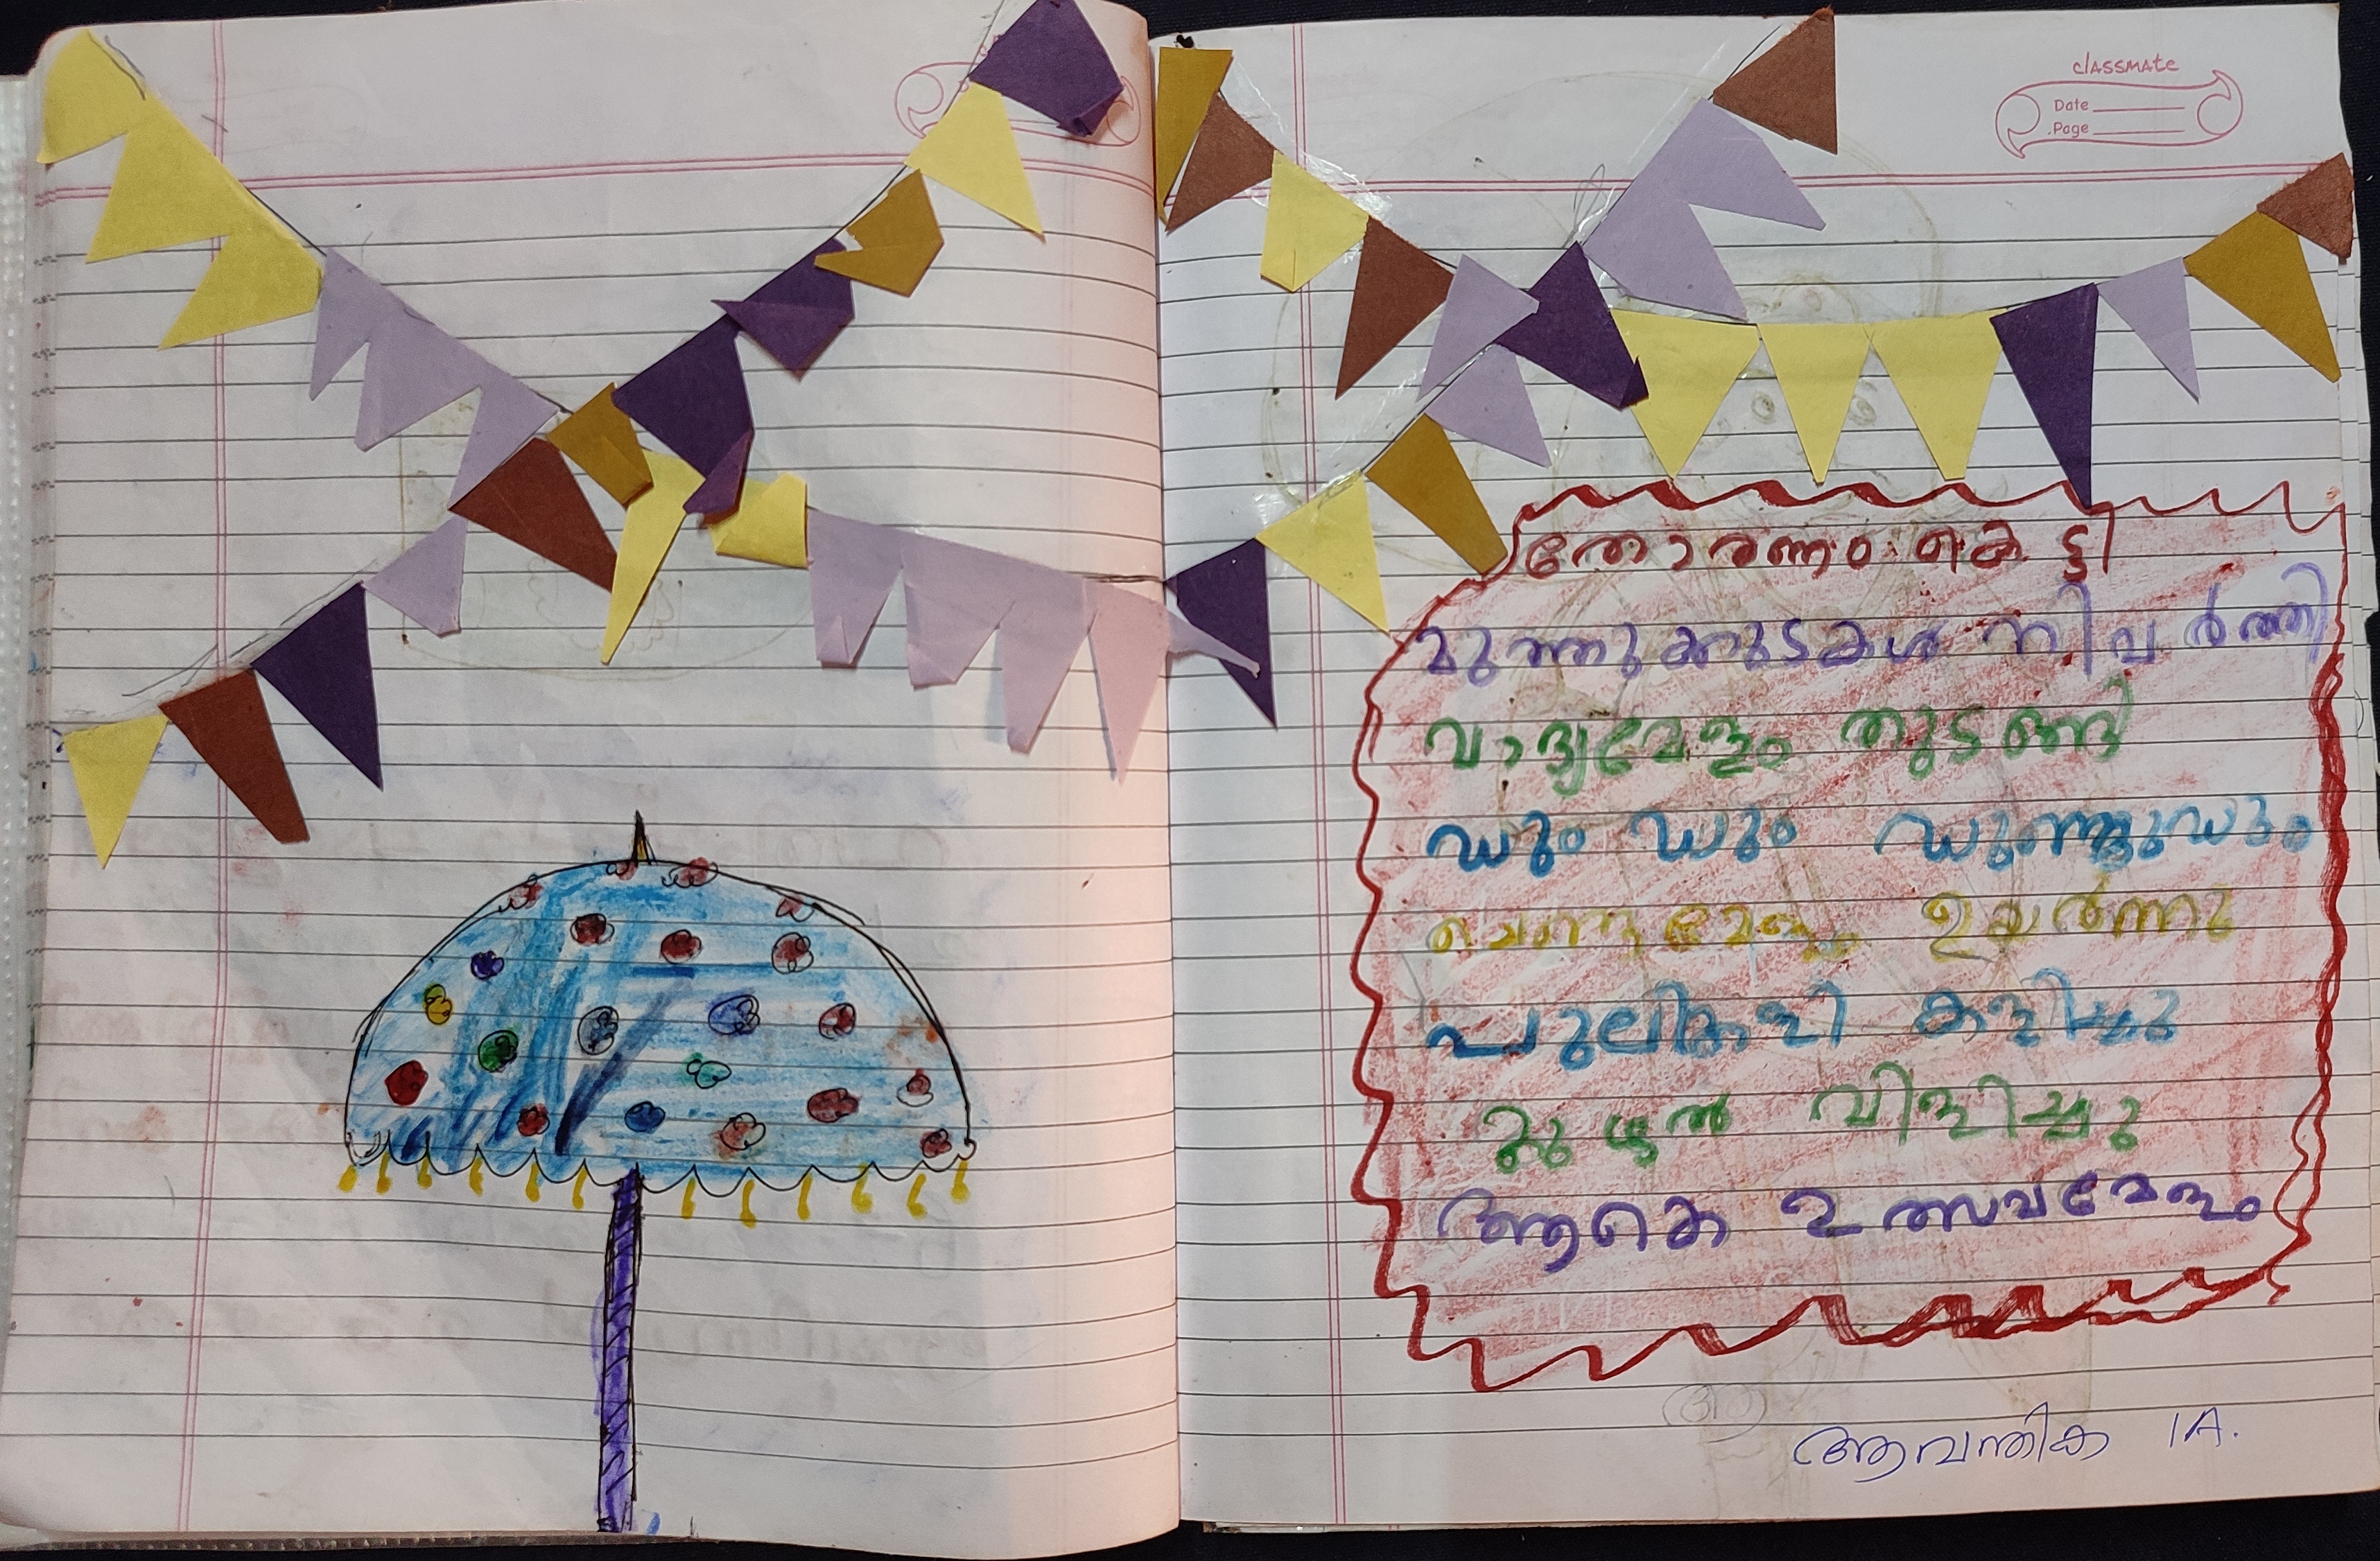 classmate
Date
Page
തോരണം കെട്ടി
മുത്തുക്കുടകൾ നിവർത്തി
വാദ്യമേളം തുടങ്ങി
ഡും ഡും ഡുണ്ടുഡും
ചെണ്ടമേളം ഉയർന്നു
പുലിക്കളി കളിച്ചു
കുഴൽ വിളിച്ചു
ആകെ ഉത്സവമേളം
ആവന്തിക 1A.